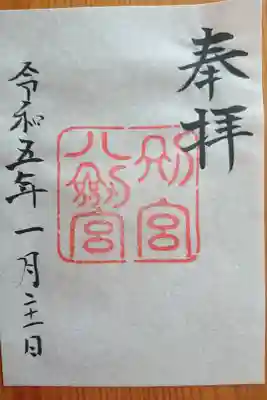 奉拝
別宮
八剱宮
令和五年一月二十一日